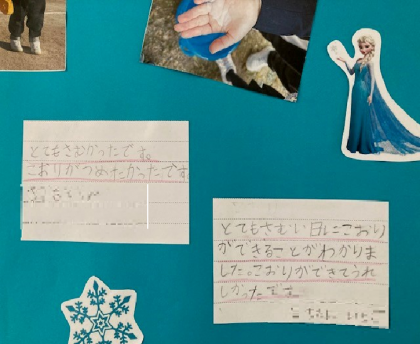 とてもさむかったです。
こおりがつめたかったです
とてもさむい日にこおり
ができることがわかりま
した。こおりができてうれ
しかったです